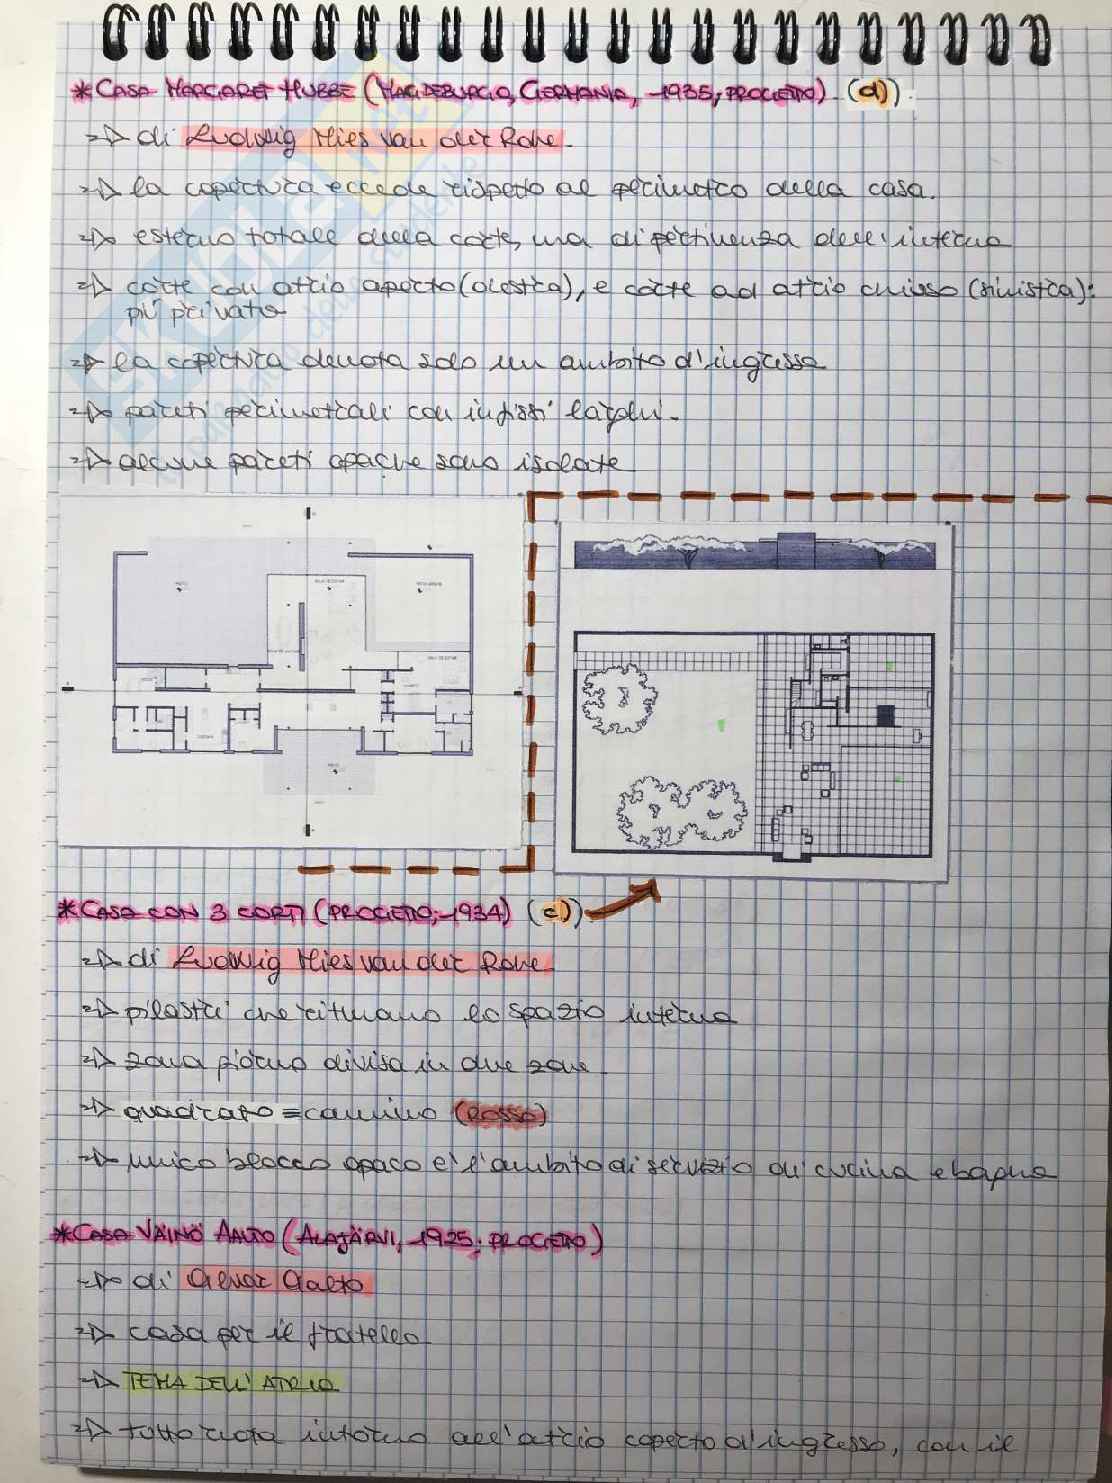 *CASA MARGARET HUBBE (MAGDEBURGO, GERMANIA, -1935, PROGETTO) (d))
=> di Ludwig Mies van der Rohe.
=> la copertura eccede rispetto al perimetro della casa.
=> esterno totale della corte, ma di pertinenza dell'interno
=> corte con atrio aperto (destra), e corte ad atrio chiuso (sinistra):
più privato
=> la copertura denota solo un ambito d'ingresso
=> pareti perimetrali con infissi larghi.
=> alcune pareti opache sono isolate
*CASA CON 3 CORTI (PROGETTO, -1934) (c))
=> di Ludwig Mies van der Rohe
=> pilastri che ritmano lo spazio interno
=> zona giorno divisa in due zone
=> quadrato = camino (rosso)
=> unico blocco opaco è l'ambito di servizio di cucina e bagno
*CASA VAINÖ AALTO (ALAJÄRVI, -1925, PROGETTO)
=> di Alvar Aalto
=> casa per il fratello
=> TEMA DELL'ATRIO
=> tutto ruota intorno all'atrio coperto d'ingresso, con il